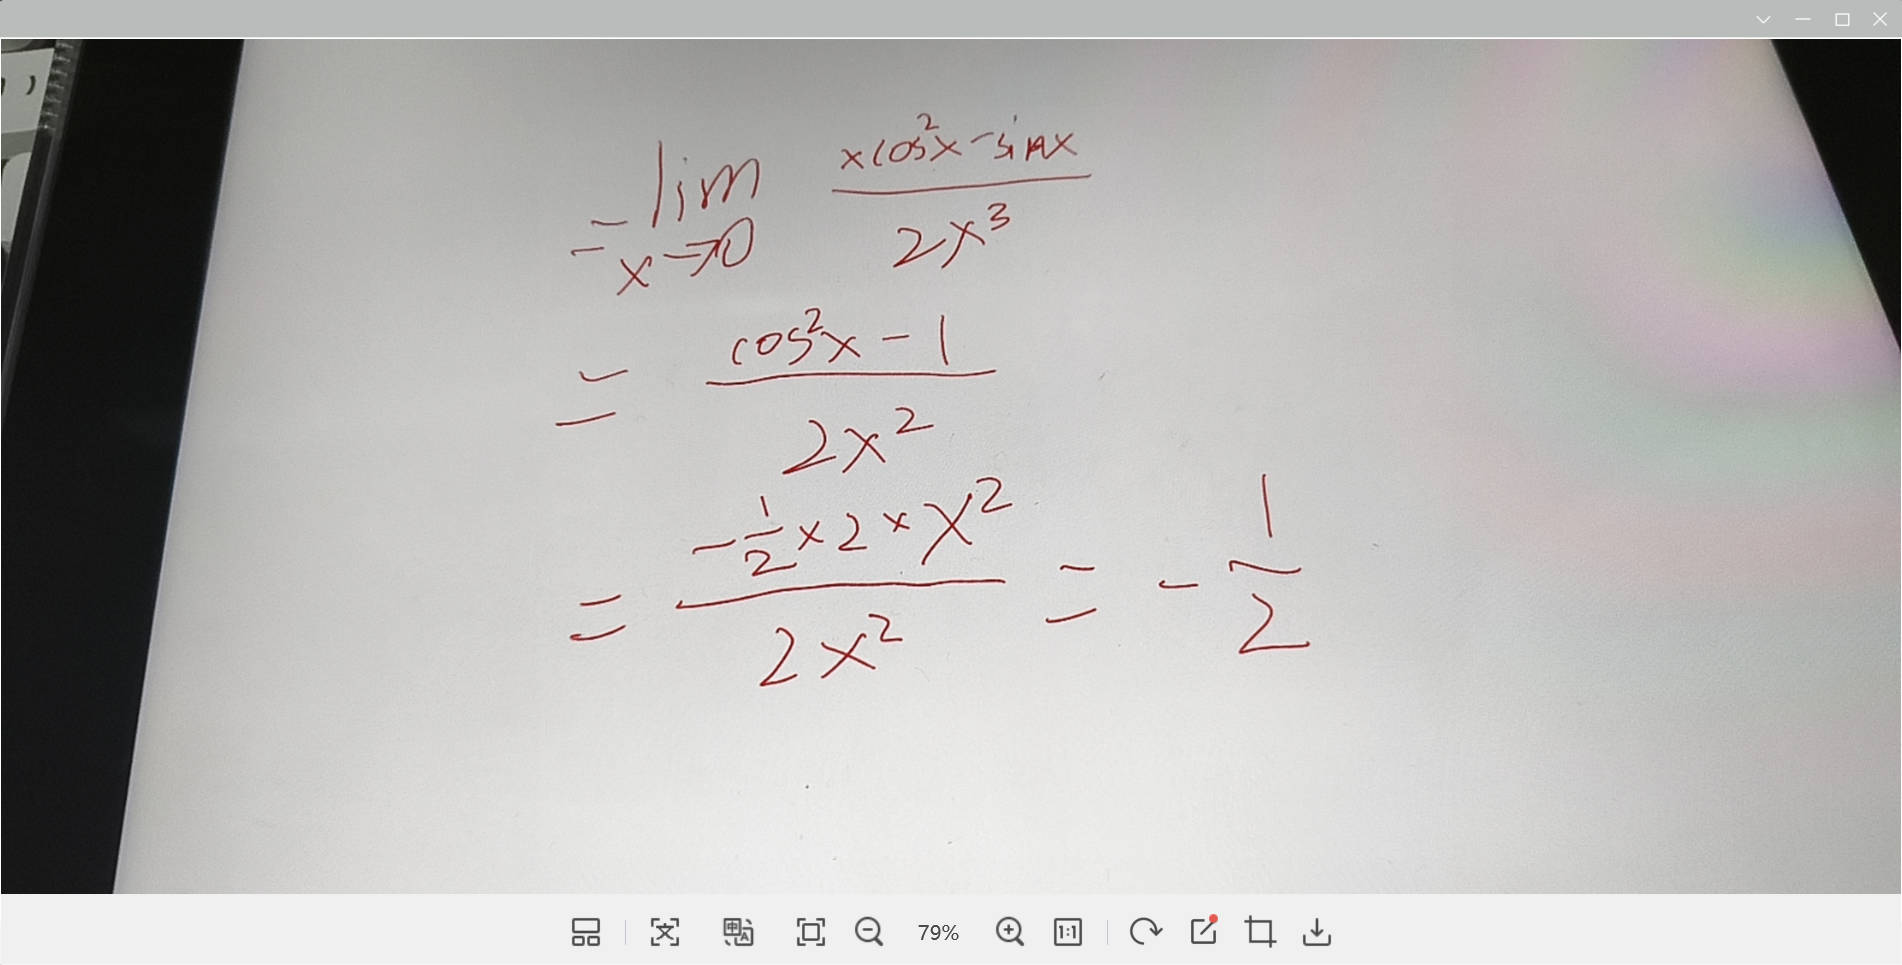 = lim x→0 (x cos²x - sin x) / (2x³)
= (cos²x - 1) / (2x²)
= (-1/2 × 2 × x²) / (2x²) = - 1/2
79%
1:1